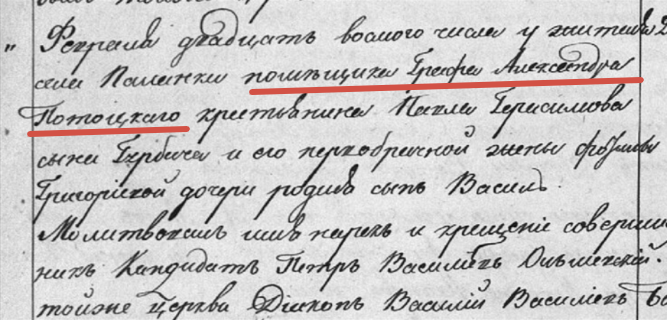 " Февраля двадцать восмого числа у жителя
села Паланки помѣщика Графа Александра
Потоцкаго крестьянина Павла Герасимова
сына Гербича и его первобрачной жены
Григорійской дочери родивъ сынъ Василъ.
Молитвовалъ имя нарекъ и крещеніе соверши
никъ Кандидатъ Петръ Василіевъ
тойже Церкви Діаконъ Василій Василіевъ